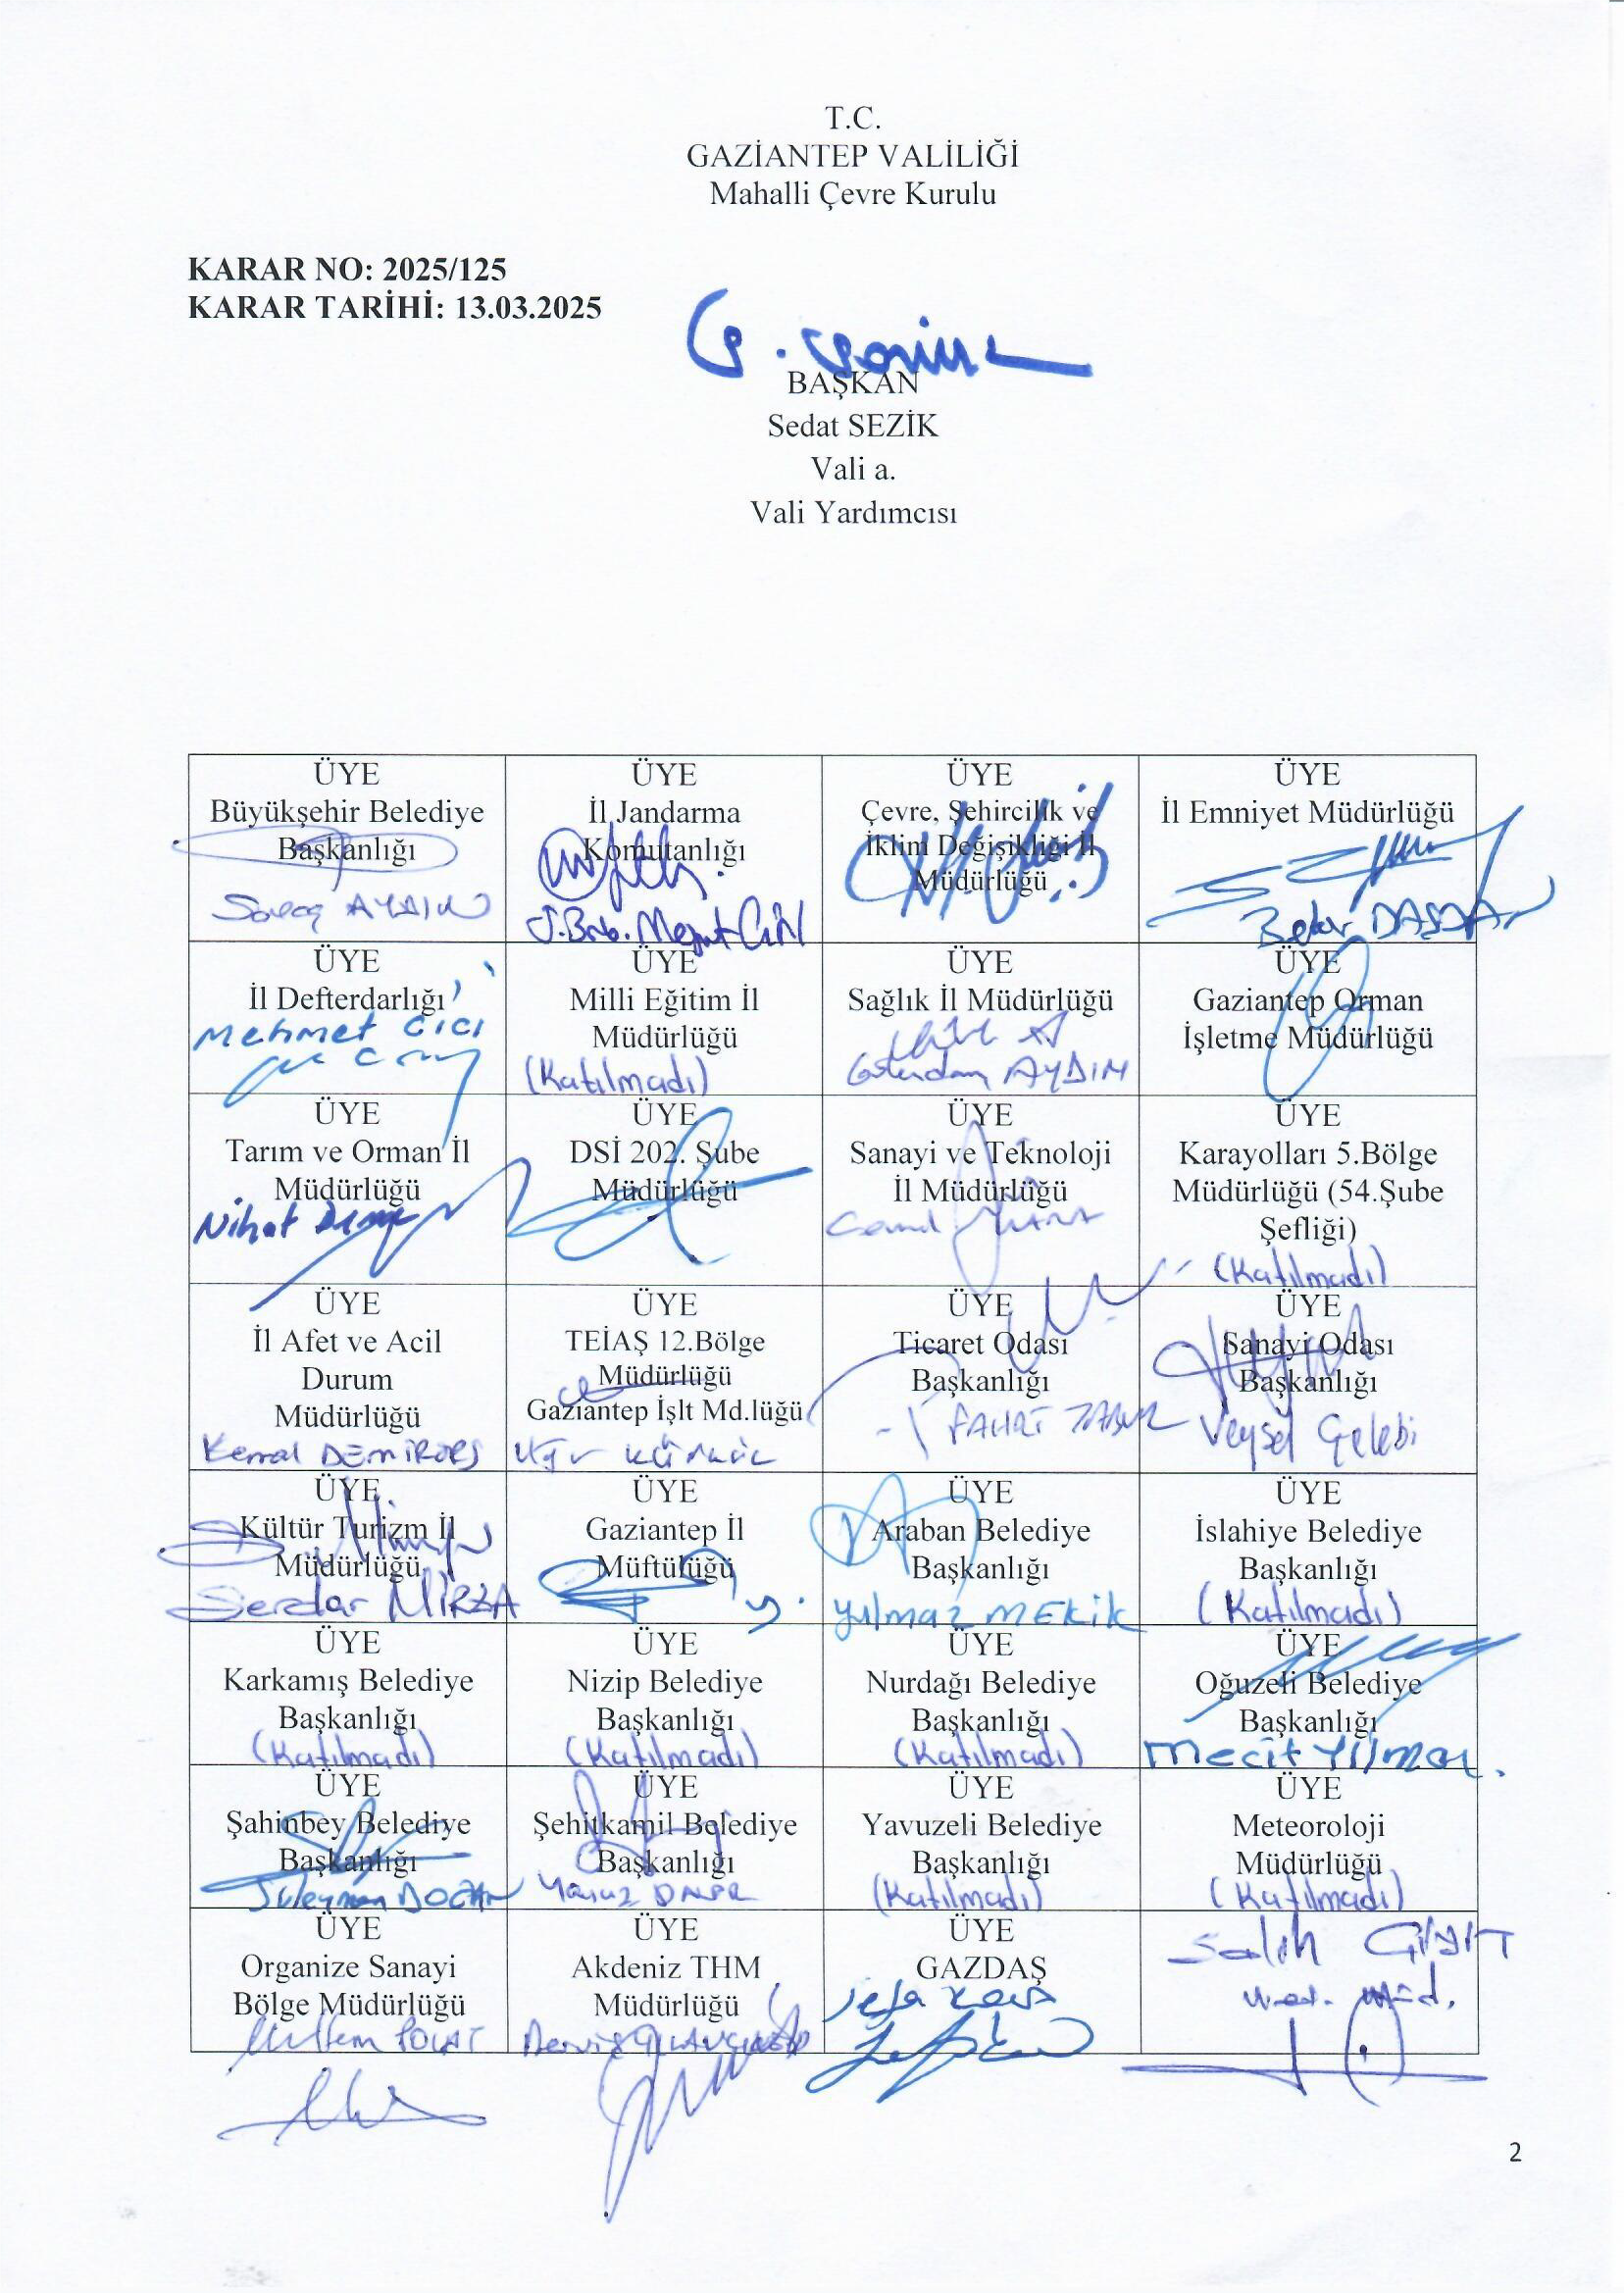 T.C.
GAZİANTEP VALİLİĞİ
Mahalli Çevre Kurulu
KARAR NO: 2025/125
KARAR TARİHİ: 13.03.2025
BAŞKAN
Sedat SEZİK
Vali a.
Vali Yardımcısı
ÜYE
Büyükşehir Belediye
Başkanlığı
AYDIN
ÜYE
İl Jandarma
Komutanlığı
ÜYE
Çevre, Şehircilik ve
İklim Değişikliği İl
Müdürlüğü
ÜYE
İl Emniyet Müdürlüğü
ÜYE
İl Defterdarlığı
Mehmet CICI
ÜYE
Milli Eğitim İl
Müdürlüğü
(Katılmadı)
ÜYE
Sağlık İl Müdürlüğü
AYDIN
ÜYE
Gaziantep Orman
İşletme Müdürlüğü
ÜYE
Tarım ve Orman İl
Müdürlüğü
Nihat
ÜYE
DSİ 202. Şube
Müdürlüğü
ÜYE
Sanayi ve Teknoloji
İl Müdürlüğü
ÜYE
Karayolları 5.Bölge
Müdürlüğü (54.Şube
Şefliği)
(Katılmadı)
ÜYE
İl Afet ve Acil
Durum
Müdürlüğü
Kemal
ÜYE
TEİAŞ 12.Bölge
Müdürlüğü
Gaziantep İşlt Md.lüğü
ÜYE
Ticaret Odası
Başkanlığı
ÜYE
Sanayi Odası
Başkanlığı
Veysel Çelebi
ÜYE
Kültür Turizm İl
Müdürlüğü
Serdar MİRZA
ÜYE
Gaziantep İl
Müftülüğü
ÜYE
Araban Belediye
Başkanlığı
Yılmaz MEKİK
ÜYE
İslahiye Belediye
Başkanlığı
(Katılmadı)
ÜYE
Karkamış Belediye
Başkanlığı
(Katılmadı)
ÜYE
Nizip Belediye
Başkanlığı
(Katılmadı)
ÜYE
Nurdağı Belediye
Başkanlığı
(Katılmadı)
ÜYE
Oğuzeli Belediye
Başkanlığı
Mecit Yılmaz
ÜYE
Şahinbey Belediye
Başkanlığı
Süleyman DOĞAN
ÜYE
Şehitkamil Belediye
Başkanlığı
ÜYE
Yavuzeli Belediye
Başkanlığı
(Katılmadı)
ÜYE
Meteoroloji
Müdürlüğü
(Katılmadı)
ÜYE
Organize Sanayi
Bölge Müdürlüğü
POLAT
ÜYE
Akdeniz THM
Müdürlüğü
ÜYE
GAZDAŞ
Salih
2